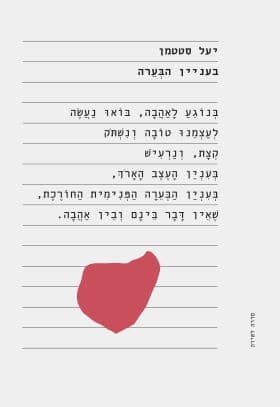 יעל סטטמן
בעניין הבְּעֵרה
בְּנוֹגֵעַ לָאַהֲבָה, בּוֹאוּ נַעֲשֶׂה
לְעַצְמֵנוּ טוֹבָה וְנִשְׁתֹּק
קְצָת, וְנַרְעִישׁ
בְּעִנְיַן הָעֶצֶב הָאָרֹךְ,
בְּעִנְיַן הַבְּעֵרָה הַפְּנִימִית הַחוֹרֶכֶת,
שֶׁאֵין דָּבָר בֵּינָם וּבֵין אַהֲבָה.